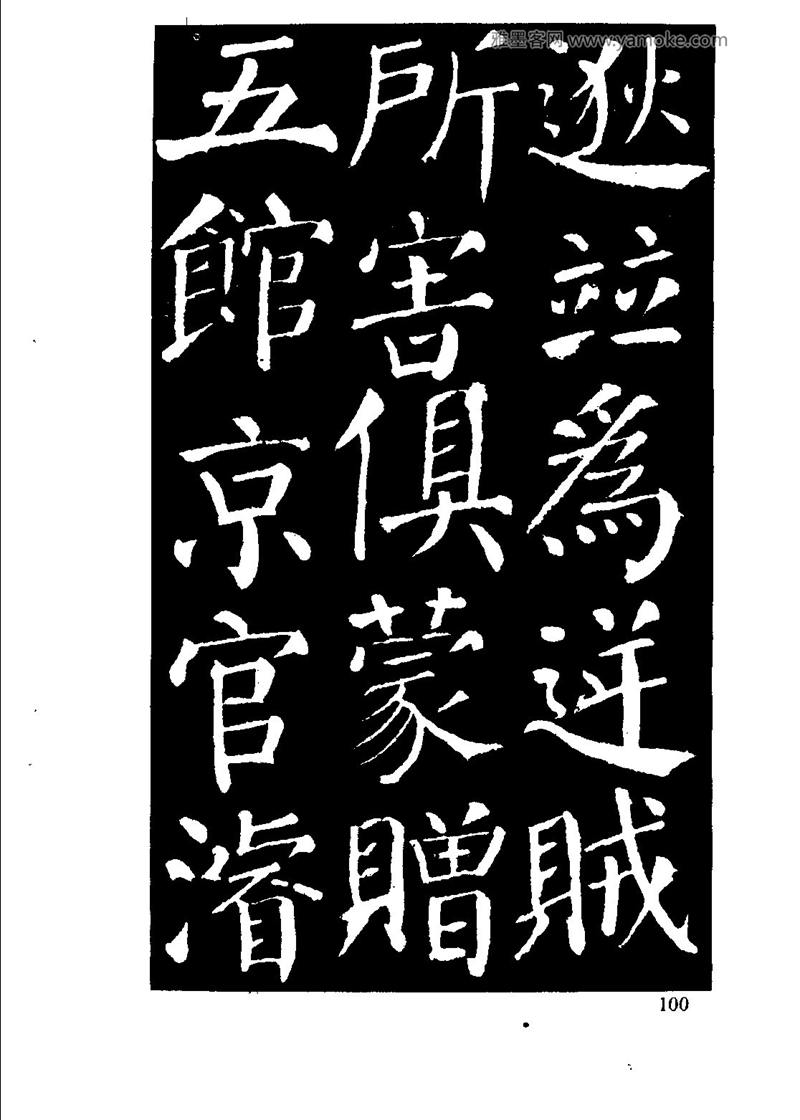 雅墨客网 www.yamoke.com
逖竝為逆賊
所害俱蒙贈
五館京官濬
100